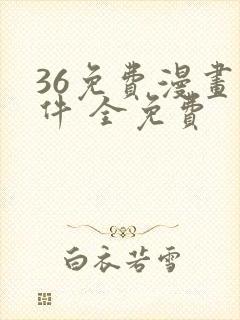 36免費漫畫
件 全免費
白衣若雪